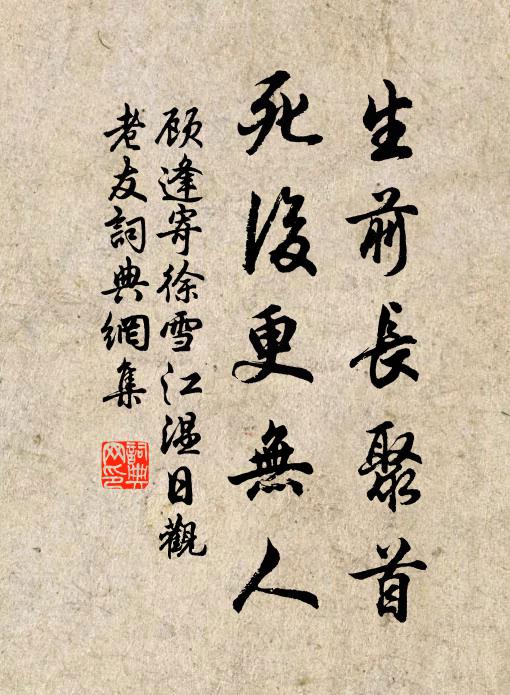 生前長聚首
死後更無人
顾逢寄徐雪江温日觀
老友詞典網集
詞典網印